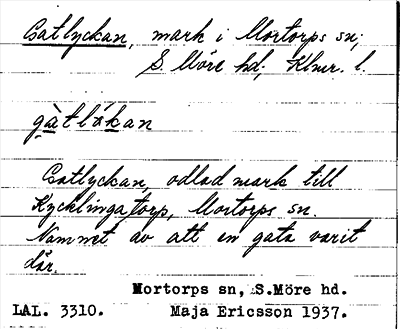 Gatlyckan, mark i Mortorps sn,
S. Möre hd, Klmr. l.
Gatlyckan, odlad mark till
Kycklingatorp, Mortorps sn.
Namnet av att en gata varit
där.
Mortorps sn, S.Möre hd.
LAL. 3310. Maja Ericsson 1937.